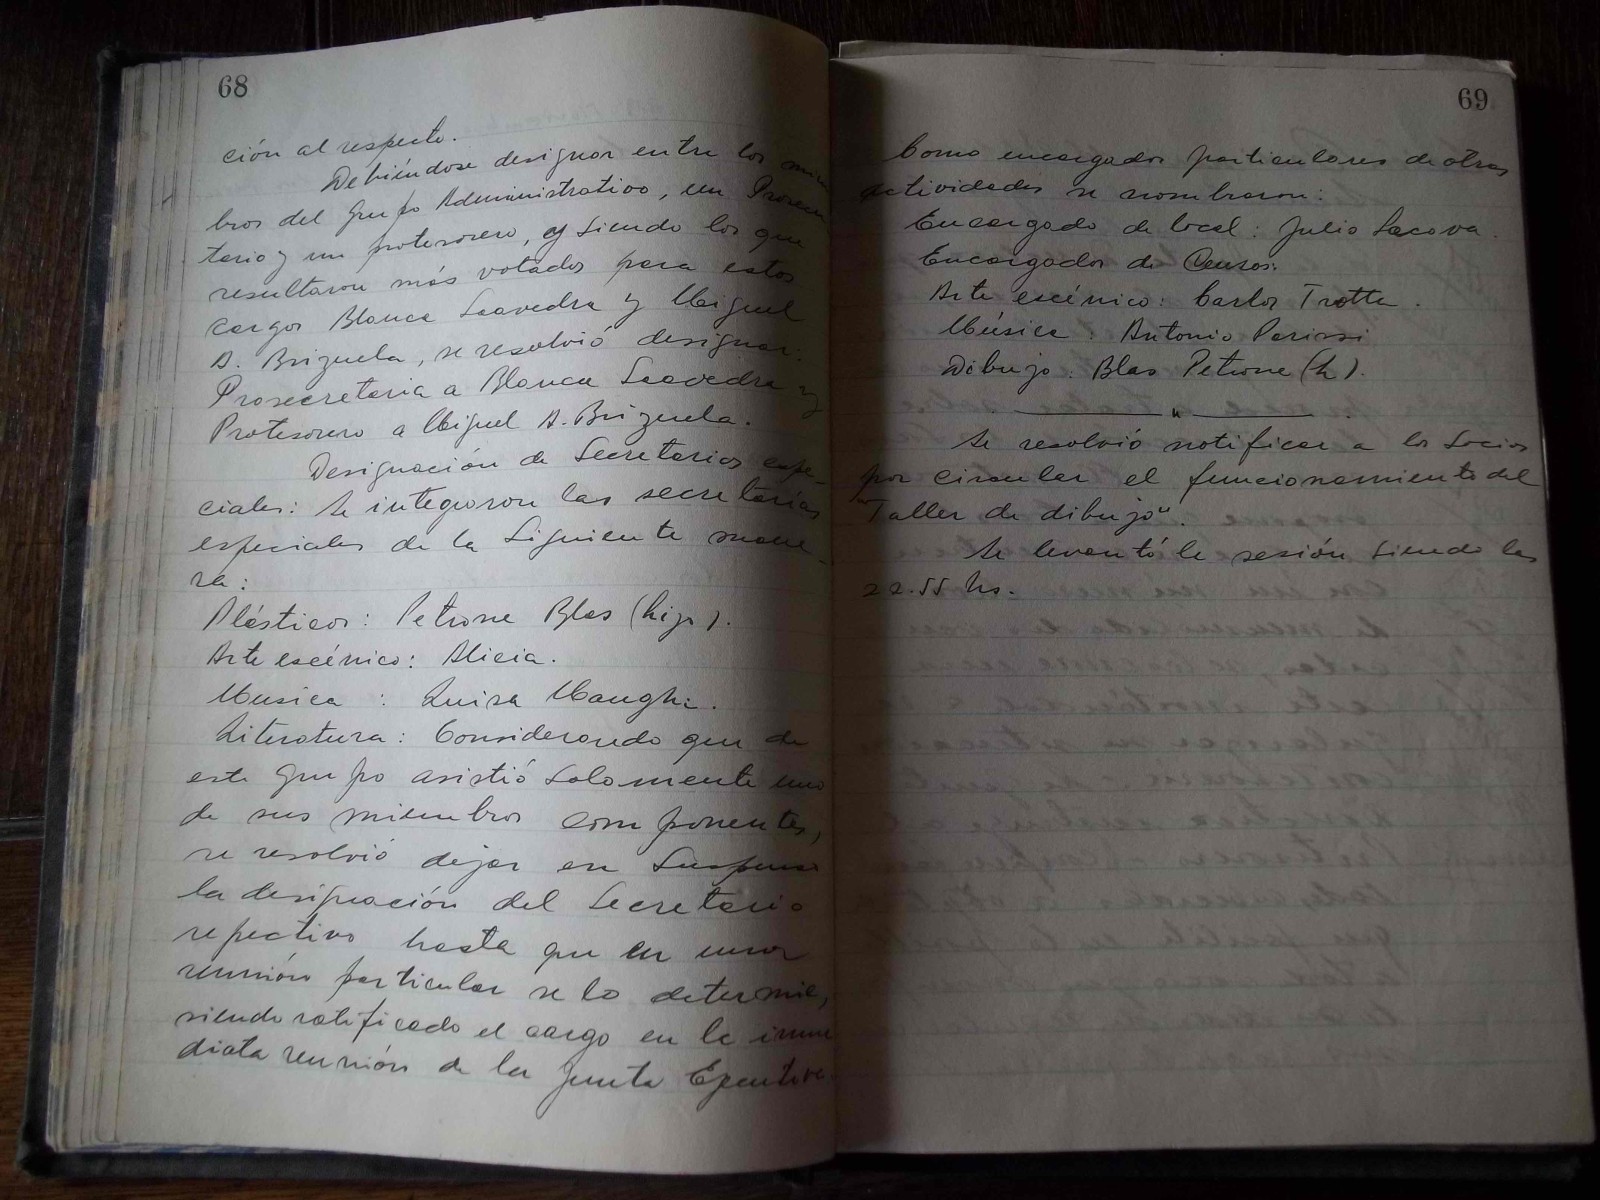 68
ción al respecto.
Debiéndose designar entre los miem
bros del Grupo Administrativo, un Prosecre
tario y un protesorero, y siendo los que
resultaron más votados para estos
cargos Blanca Saavedra y Miguel
A. Brizuela, se resolvió designar:
Prosecretaria a Blanca Saavedra y
Protesorero a Miguel A. Brizuela.
Designación de Secretarios espe-
ciales: Se integraron las secretarías
especiales de la siguiente mane-
ra:
Plásticos: Petrone Blas (hijo).
Arte escénico: Alicia.
Musica : Luisa Maughi.
Literatura: Considerando que de
este grupo asistió solamente uno
de sus miembros componentes,
se resolvió dejar en suspenso
la designación del Secretario
repectivo hasta que en una
reunión particular se lo determine,
siendo ratificado el cargo en la inme
diata reunión de la Junta Ejecutiva.
69
Como encargados particulares de otras
actividades se nombraron:
Encargado de local: Julio Lacova.
Encargados de Cursos:
Arte escénico: Carlos Trotta.
Música : Antonio Parissi
Dibujo: Blas Petrone (h).
Se resolvió notificar a los socios
por circular el funcionamiento del
"Taller de dibujo".
Se levantó la sesión siendo las
22.55 hs.